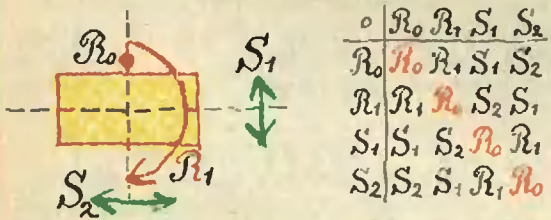 R₀
S₁
R₁
S₂
∘ R₀ R₁ S₁ S₂
R₀ R₀ R₁ S₁ S₂
R₁ R₁ R₀ S₂ S₁
S₁ S₁ S₂ R₀ R₁
S₂ S₂ S₁ R₁ R₀